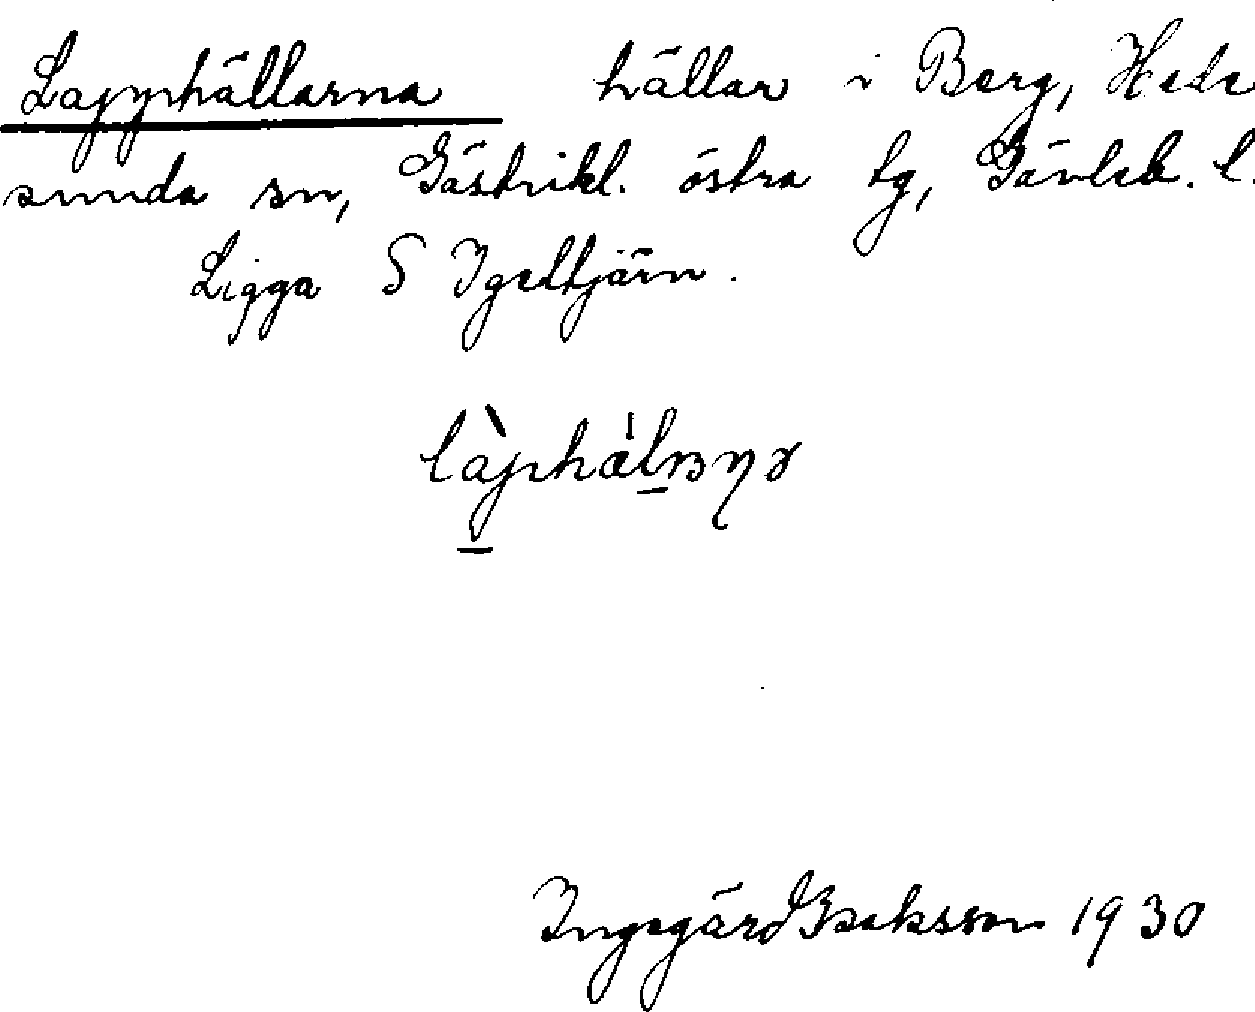 Lapphällarna hällar i Berg, Hede
sunda sn, Gästrikl. östra tg, Gävleb. l.
Ligga S Igeltjärn.
Ingegärd Isaksson 1930